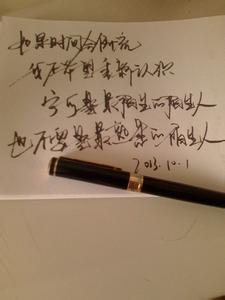 如果时间会倒流
我不希望重新认识
宁可要最陌生的陌生人
也不要要最熟悉的陌生人
2013.10.1